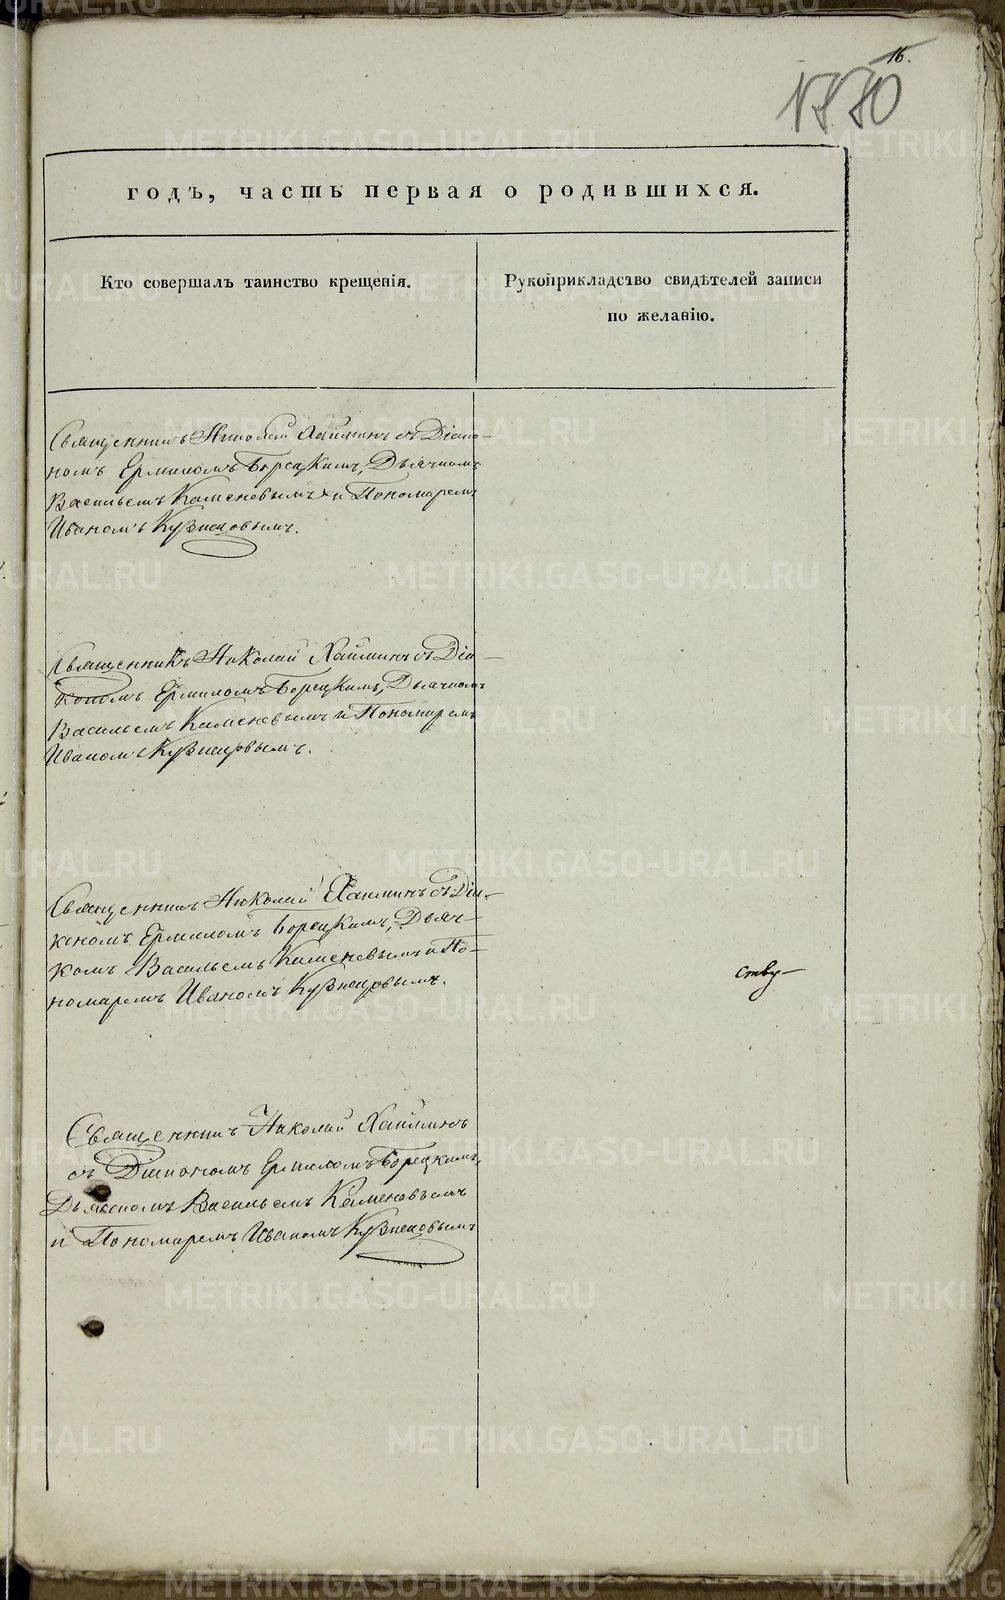 16.
годъ, часть первая о родившихся.
Кто совершалъ таинство крещенія.
Рукоприкладство свидѣтелей записи
по желанію.
Священникъ Николай Хайминъ съ Діако-
номъ Ермиломъ Борецкимъ, Дьячкомъ
Васильемъ Каменевымъ и Пономаремъ
Иваномъ Кузнецовымъ.
Священникъ Николай Хайминъ съ Діа-
кономъ Ермиломъ Борецкимъ, Дьячкомъ
Васильемъ Каменевымъ и Пономаремъ
Иваномъ Кузнецовымъ.
Священникъ Николай Хайминъ съ Діа-
кономъ Ермиломъ Борецкимъ, Дьяч-
комъ Васильемъ Каменевымъ и По-
номаремъ Иваномъ Кузнецовымъ.
ству-
Священникъ Николай Хайминъ
съ Діакономъ Ермиломъ Борецкимъ,
Дьячкомъ Васильемъ Каменевымъ
и Пономаремъ Иваномъ Кузнецовымъ
METRIKI.GASO-URAL.RU